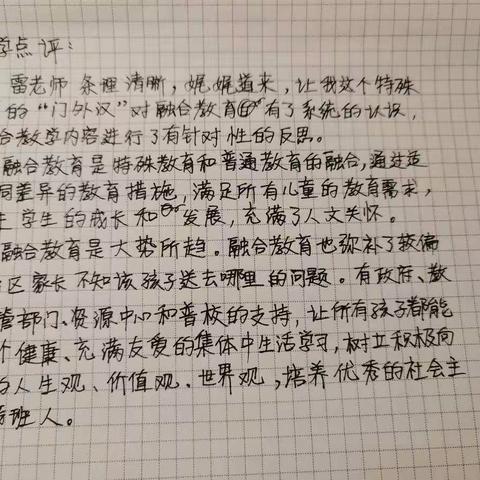 学点评：
雷老师 条理清晰，娓娓道来，让我这个特殊
的“门外汉”对融合教育有了系统的认识，
合教学内容进行了有针对性的反思。
融合教育是特殊教育和普通教育的融合，通过适
同差异的教育措施，满足所有儿童的教育需求，
学生的成长和发展，充满了人文关怀。
融合教育是大势所趋。融合教育也弥补了较偏
区家长不知该孩子送去哪里的问题。有政府、教
管部门、资源中心和普校的支持，让所有孩子都能
个健康、充满友爱的集体中生活学习，树立积极向
的人生观、价值观、世界观，培养优秀的社会主
接班人。